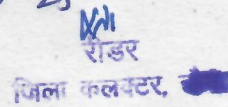 रीडर
जिला कलक्टर,